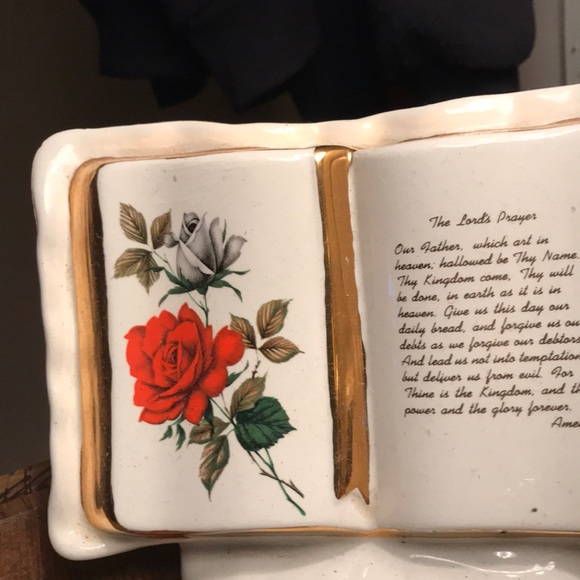 The Lord's Prayer
Our Father, which art in
heaven; hallowed be Thy Name.
Thy Kingdom come, Thy will
be done, in earth as it is in
heaven. Give us this day our
daily bread, and forgive us our
debts as we forgive our debtors
And lead us not into temptation
but deliver us from evil. For
Thine is the Kingdom, and th
power and the glory forever.
Ame